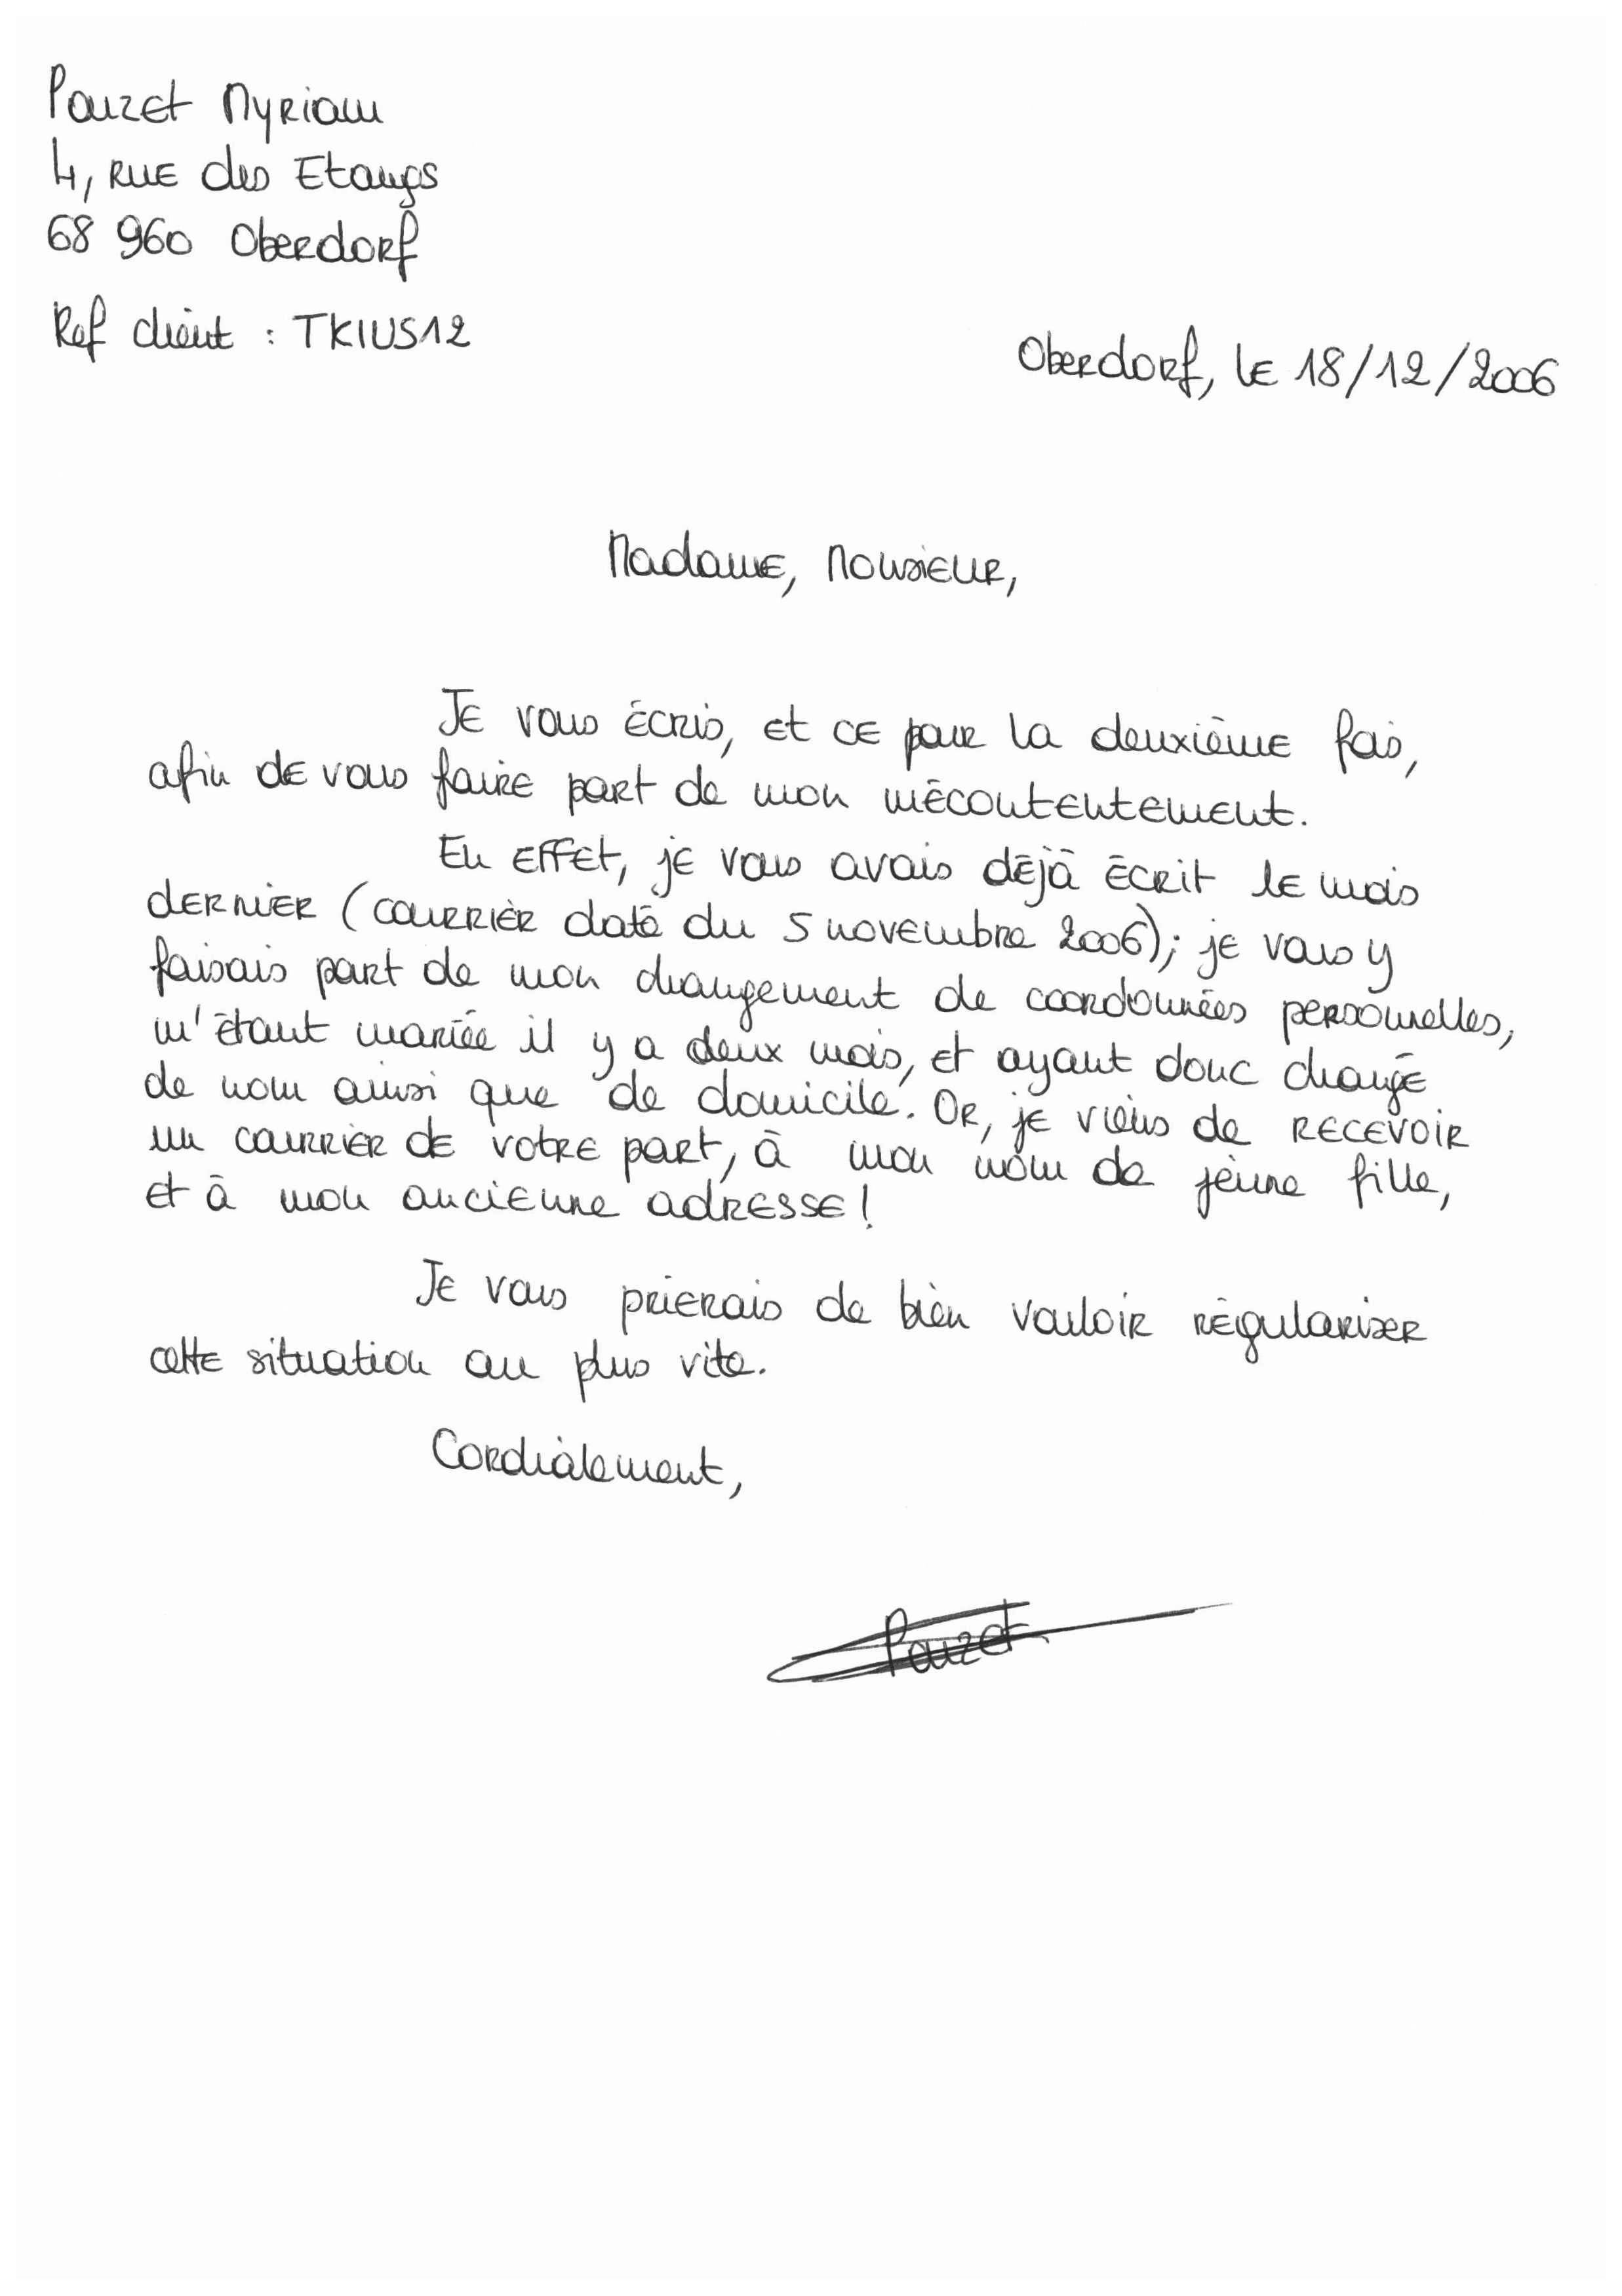 Pouzet Myriam
4, rue des Etangs
68 960 Oberdorf
Ref client : TKIUS12
Oberdorf, le 18/12/2006
Madame, Monsieur,
Je vous écris, et ce pour la deuxième fois,
afin de vous faire part de mon mécontentement.
En effet, je vous avais déjà écrit le mois
dernier (courrier daté du 5 novembre 2006); je vous y
faisais part de mon changement de coordonnées personnelles,
m'étant mariée il y a deux mois, et ayant donc changé
de nom ainsi que de domicile. Or, je viens de recevoir
un courrier de votre part, à mon nom de jeune fille,
et à mon ancienne adresse !
Je vous prierais de bien vouloir régulariser
cette situation au plus vite.
Cordialement,
Pouzet